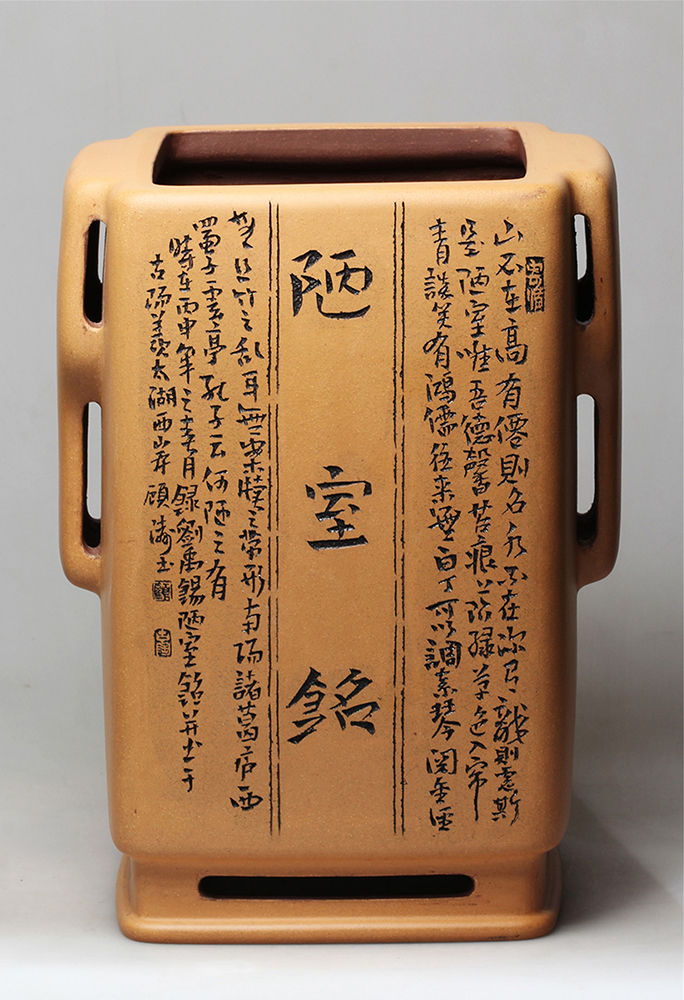 山不在高有僊則名水不在深有龍則靈斯
是陋室唯吾德馨苔痕上阶緑草色入帘
青談笑有鴻儒徃来無白丁可以調素琴閱金經
陋室銘
無丝竹之乱耳無案牘之勞形南陽諸葛庐西
蜀子雲亭孔子云何陋之有
時在丙申年之月録劉禹錫陋室銘并书于
古陽羡太湖西顧